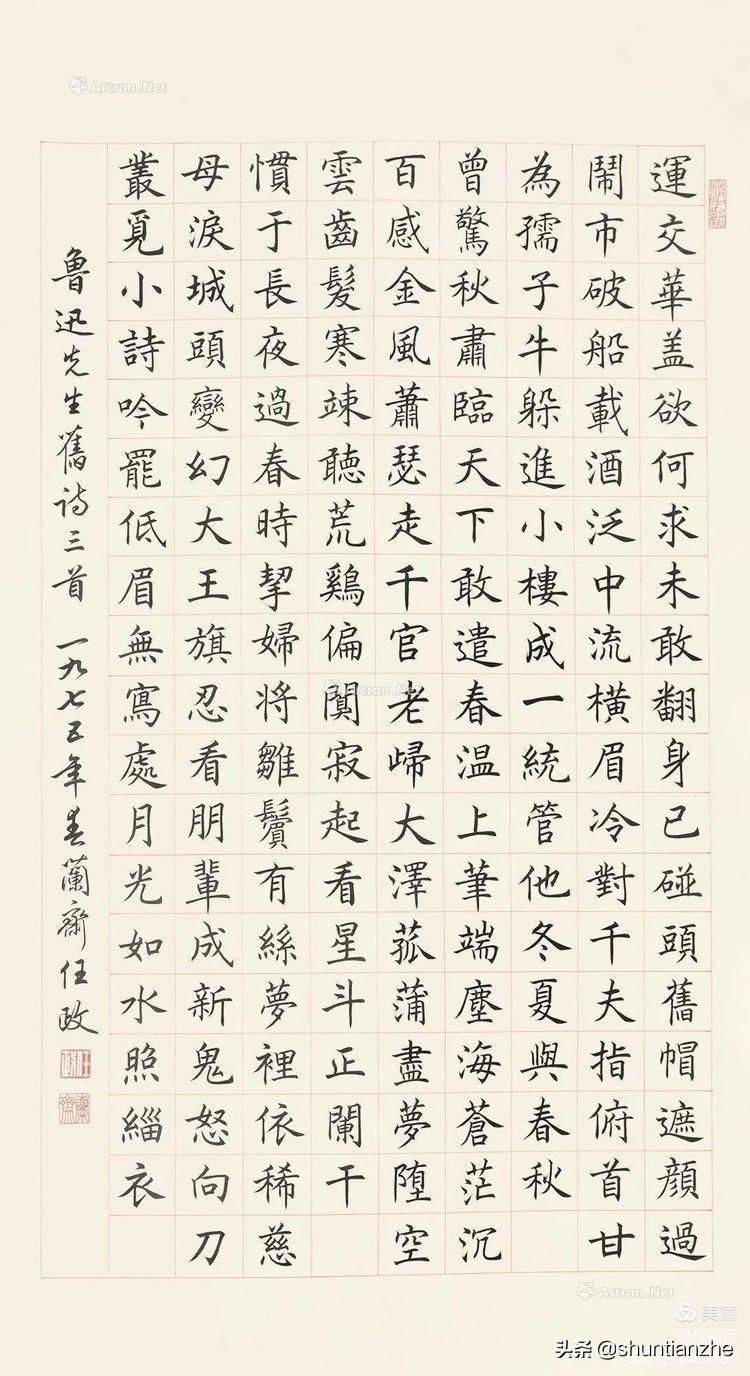 運交華盖欲何求未敢翻身已碰頭舊帽遮顏過
鬧市破船載酒泛中流橫眉冷對千夫指俯首甘
為孺子牛躲進小樓成一統管他冬夏與春秋
曾驚秋肅臨天下敢遣春温上筆端塵海蒼茫沉
百感金風蕭瑟走千官老歸大澤菰蒲盡夢墮空
雲齒髮寒竦聽荒鷄偏闃寂起看星斗正闌干
慣于長夜過春時挈婦将雛鬢有絲夢裡依稀慈
母淚城頭變幻大王旗忍看朋輩成新鬼怒向刀
叢覓小詩吟罷低眉無寫處月光如水照緇衣
魯迅先生舊诗三首 一九七五年春蘭齋任政
Artron.Net
Artron.Net
Artron.Net
美篇
头条 @shuntianzhe